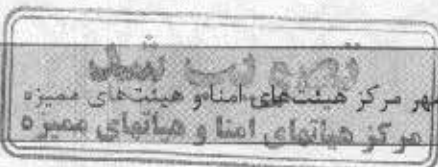 مهر مرکز هیئت‌های امنا و هیئت‌های ممیزه
مرکز هیأتهای امنا و هیأتهای ممیزه